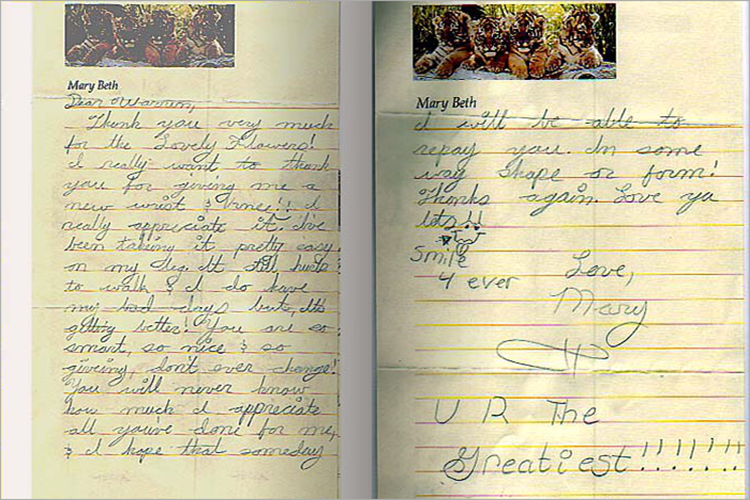 Mary Beth
Dear Warren,
Thank you very much
for the Lovely Flowers!
I really want to thank
you for giving me a
new wrist & knee!! I
really appreciate it. I've
been taking it pretty easy
on my leg. It still hurts
to walk & I do have
my bad days but, It's
getting better! You are so
smart, so nice & so
giveing, don't ever change!
You will never know
how much I appreciate
all youve done for me,
& I hope that someday
Mary Beth
I will be able to
repay you. In some
way shape or form!
Thanks again. Love ya
lots!!
Smile
4 ever
Love,
Mary
U R The
Greatiest!!!!!!!